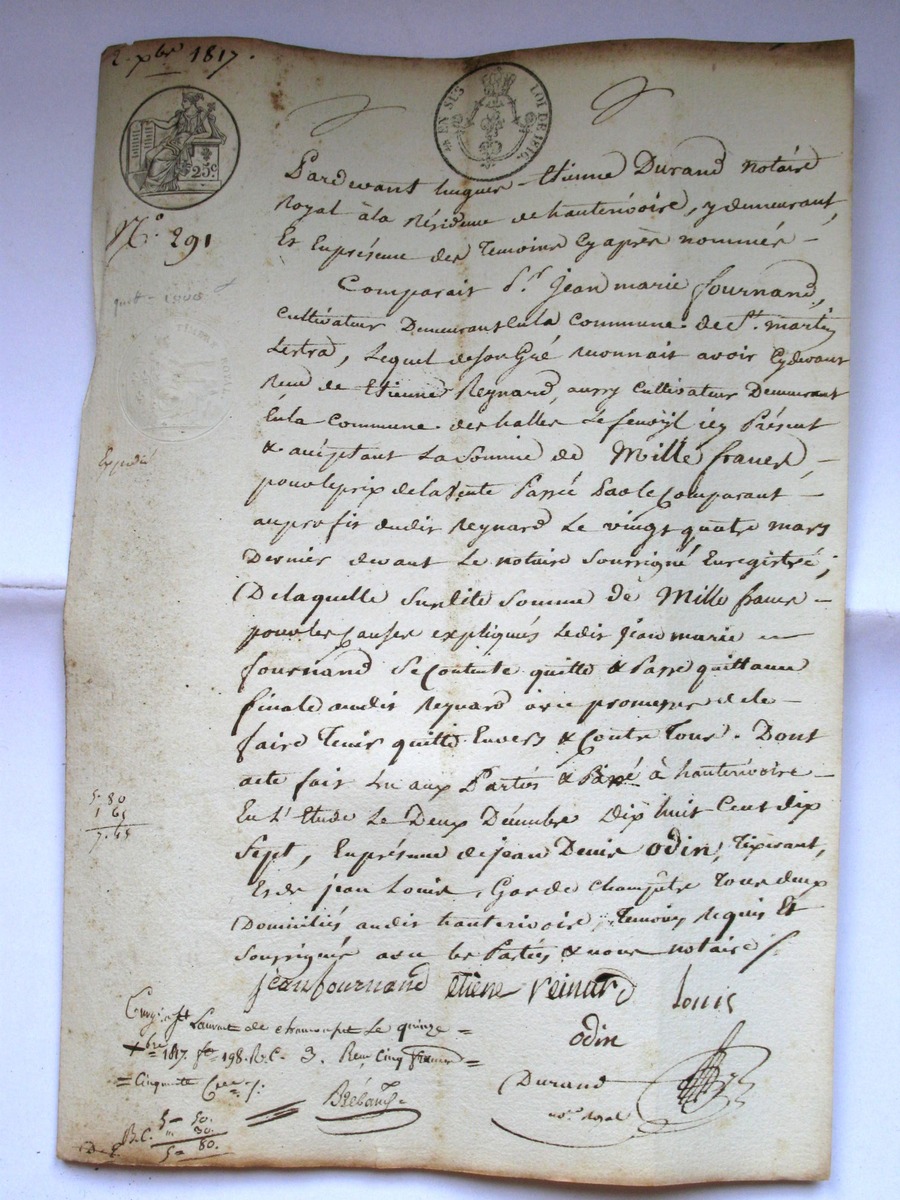 2. xbre 1817.
EN SUS LOI DE 1816.
25c
No. 291
Pardevant hugues - Etienne Durand Notaire
Royal à la Résidence de hauterivoire, y demeurant,
Et En présence des Temoins Cy après nommés -
Comparait Sr. Jean marie fournand,
Cultivateur Demeurant En la Commune de St. martin
Lestra, Lequel de son Gré reconnait avoir Cy devant
Recu de Etienne Reynard, aussy Cultivateur Demeurant
En la Commune des halles Le fenoÿl icy Présent
& acceptant La Somme de Mille francs, -
pour le prix de la Vente Passée Par le Comparant -
au profit dudit Reynard Le vingt quatre mars
Dernier devant Le notaire Soussigné Enregistré;
De laquelle Susdite Somme de Mille francs -
pour les Causes expliqués Ledit Jean marie -
fournand Se Contente quitte & Passe quittance
finale audit Reynard avec promesse de le -
faire Tenir quitte Envers & Contre Tous. Dont
acte fait Lu aux Parties & Passé à hauterivoire -
En L'Etude Le Deux Décembre Dix huit Cent dix
Sept, En présence de jean Denis odin, Tixerant,
Et de jean Louis, Garde Champêtre Tous deux
Domiciliés audit hauterivoire, Temoins Requis Et
Soussignés avec les Parties & nous notaire
Expédié
5. 80
1 65
7. 45
jean fournand etiene reinard Louis
odin
Durand
nore. Royal
Enregé. a St Laurent de chamousset Le quinze =
xbre 1817. fo. 198. R.C. 3. Reçu Cinq francs =
= Cinquante Cmes
Brébant
5 - 50.
30.
5 = 80.